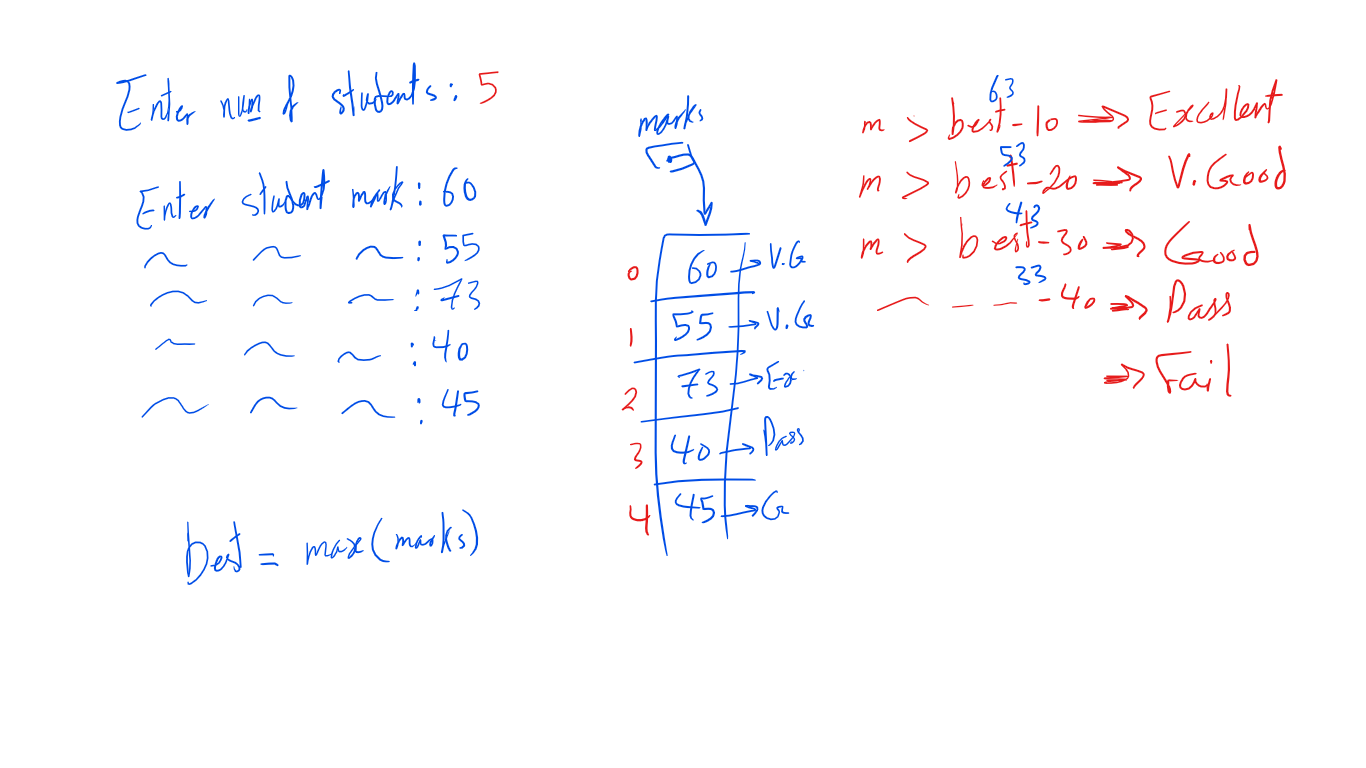 Enter num of students: 5
Enter student mark: 60
~ ~ ~: 55
~ ~ ~: 73
~ ~ ~: 40
~ ~ ~: 45
best = max(marks)
marks
0 60 → V.G
1 55 → V.G
2 73 → Ex
3 40 → Pass
4 45 → G
63
m > best - 10 ⇒ Excellent
53
m > best - 20 ⇒ V.Good
43
m > best - 30 ⇒ Good
33
~ - - - 40 ⇒ Pass
⇒ Fail